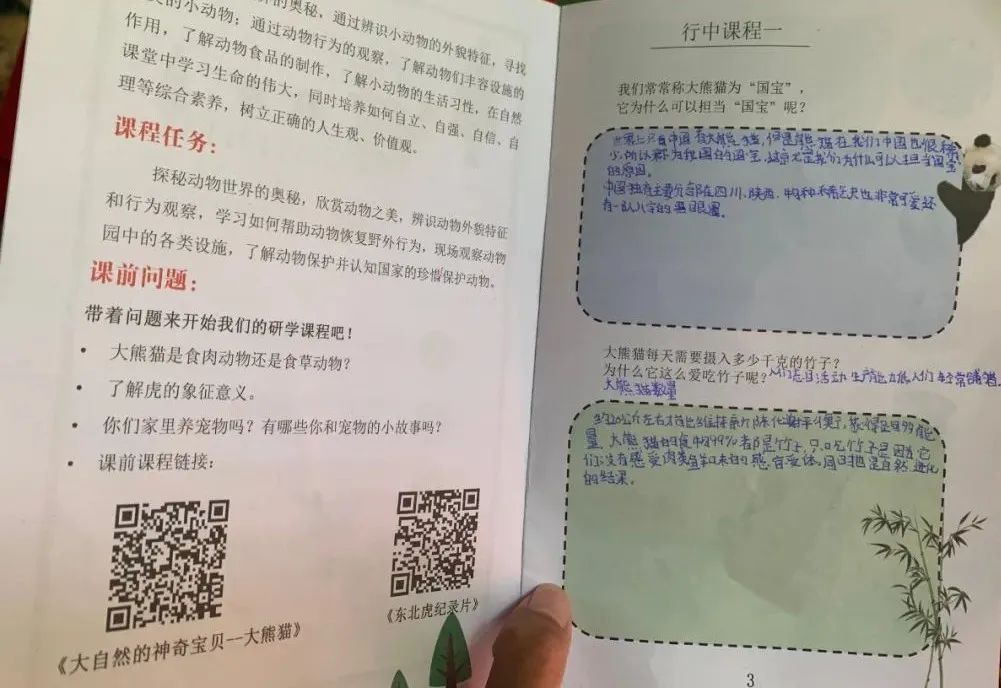 界的奥秘，通过辨识小动物的外貌特征，寻找
的小动物；通过动物行为的观察，了解动物们丰容设施的
作用，了解动物食品的制作，了解小动物的生活习性，在自然
课堂中学习生命的伟大，同时培养如何自立、自强、自信、自
理等综合素养，树立正确的人生观、价值观。
课程任务：
探秘动物世界的奥秘，欣赏动物之美，辨识动物外貌特征
和行为观察，学习如何帮助动物恢复野外行为，现场观察动物
园中的各类设施，了解动物保护并认知国家的珍惜保护动物。
课前问题：
带着问题来开始我们的研学课程吧！
• 大熊猫是食肉动物还是食草动物？
• 了解虎的象征意义。
• 你们家里养宠物吗？有哪些你和宠物的小故事吗？
• 课前课程链接：
《大自然的神奇宝贝--大熊猫》
《东北虎纪录片》
行中课程一
我们常常称大熊猫为“国宝”，
它为什么可以担当“国宝”呢？
世界上只有中国有大熊猫，但是熊猫在我们中国也很稀
少，所以称为我国的国宝，这
的原因。
中国独有主要分部在四川、陕西、
有一
大熊猫每天需要摄入多少千克的竹子？
为什么它这么爱吃竹子呢？人们
大熊猫数量
约20公斤左右才
量，大熊猫的食物99%都是竹子，只吃竹子是因为它
们没有感受肉类鲜味的感官受体，同时也是自然进化
的结果。
3